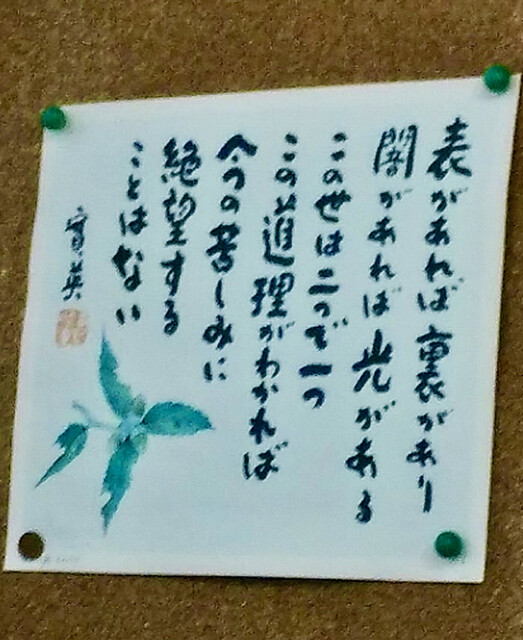 表があれば裏があり
闇があれば光がある
この世は二つで一つ
この道理がわかれば
今の苦しみに
絶望する
ことはない